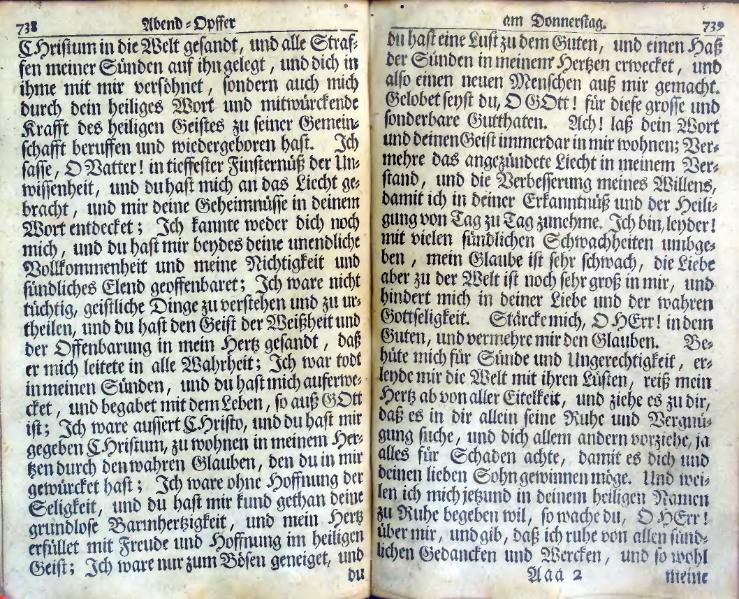 738 Abend-Opffer
CHristum in die Welt gesandt, und alle Straf-
fen meiner Sünden auf ihn gelegt, und dich in
ihme mit mir versöhnet, sondern auch mich
durch dein heiliges Wort und mitwürckende
Krafft des heiligen Geistes zu seiner Gemein-
schafft beruffen und wiedergeboren hast. Ich
sasse, O Vatter! in tieffester Finsternüß der Un-
wissenheit, und du hast mich an das Liecht ge-
bracht, und mir deine Geheimnüsse in deinem
Wort entdecket; Ich kannte weder dich noch
mich, und du hast mir beydes deine unendliche
Vollkommenheit und meine Nichtigkeit und
sündliches Elend geoffenbaret; Ich ware nicht
tüchtig, geistliche Dinge zu verstehen und zu ur-
theilen, und du hast den Geist der Weißheit und
der Offenbarung in mein Hertz gesandt, daß
er mich leitete in alle Wahrheit; Ich war todt
in meinen Sünden, und du hast mich auferwe-
cket, und begabet mit dem Leben, so auß GOtt
ist; Ich ware aussert CHristo, und du hast mir
gegeben CHristum, zu wohnen in meinem Her-
tzen durch den wahren Glauben, den du in mir
gewürcket hast; Ich ware ohne Hoffnung der
Seligkeit, und du hast mir kund gethan deine
grundlose Barmhertzigkeit, und mein Hertz
erfüllet mit Freude und Hoffnung im heiligen
Geist; Ich ware nur zum Bösen geneiget, und
du
am Donnerstag. 739
du hast eine Lust zu dem Guten, und einen Haß
der Sünden in meinem Hertzen erwecket, und
also einen neuen Menschen auß mir gemacht.
Gelobet seyst du, O GOtt! für diese grosse und
sonderbare Gutthaten. Ach! laß dein Wort
und deinen Geist immerdar in mir wohnen; Ver-
mehre das angezündete Liecht in meinem Ver-
stand, und die Verbesserung meines Willens,
damit ich in deiner Erkanntnüß und der Heili-
gung von Tag zu Tag zunehme. Ich bin, leyder!
mit vielen sündlichen Schwachheiten umbge-
ben, mein Glaube ist sehr schwach, die Liebe
aber zu der Welt ist noch sehr groß in mir, und
hindert mich in deiner Liebe und der wahren
Gottseligkeit. Stärcke mich, O HErr! in dem
Guten, und vermehre mir den Glauben. Be-
hüte mich für Sünde und Ungerechtigkeit, er-
leyde mir die Welt mit ihren Lüsten, reiß mein
Hertz ab von aller Eitelkeit, und ziehe es zu dir,
daß es in dir allein seine Ruhe und Vergnü-
gung suche, und dich allem andern vorziehe, ja
alles für Schaden achte, damit es dich und
deinen lieben Sohn gewinnen möge. Und wei-
len ich mich jetzund in deinem heiligen Namen
zu Ruhe begeben wil, so wache du, O HErr!
über mir, und gib, daß ich ruhe von allen sünd-
lichen Gedancken und Wercken, und so wohl
Aaa 2 meine